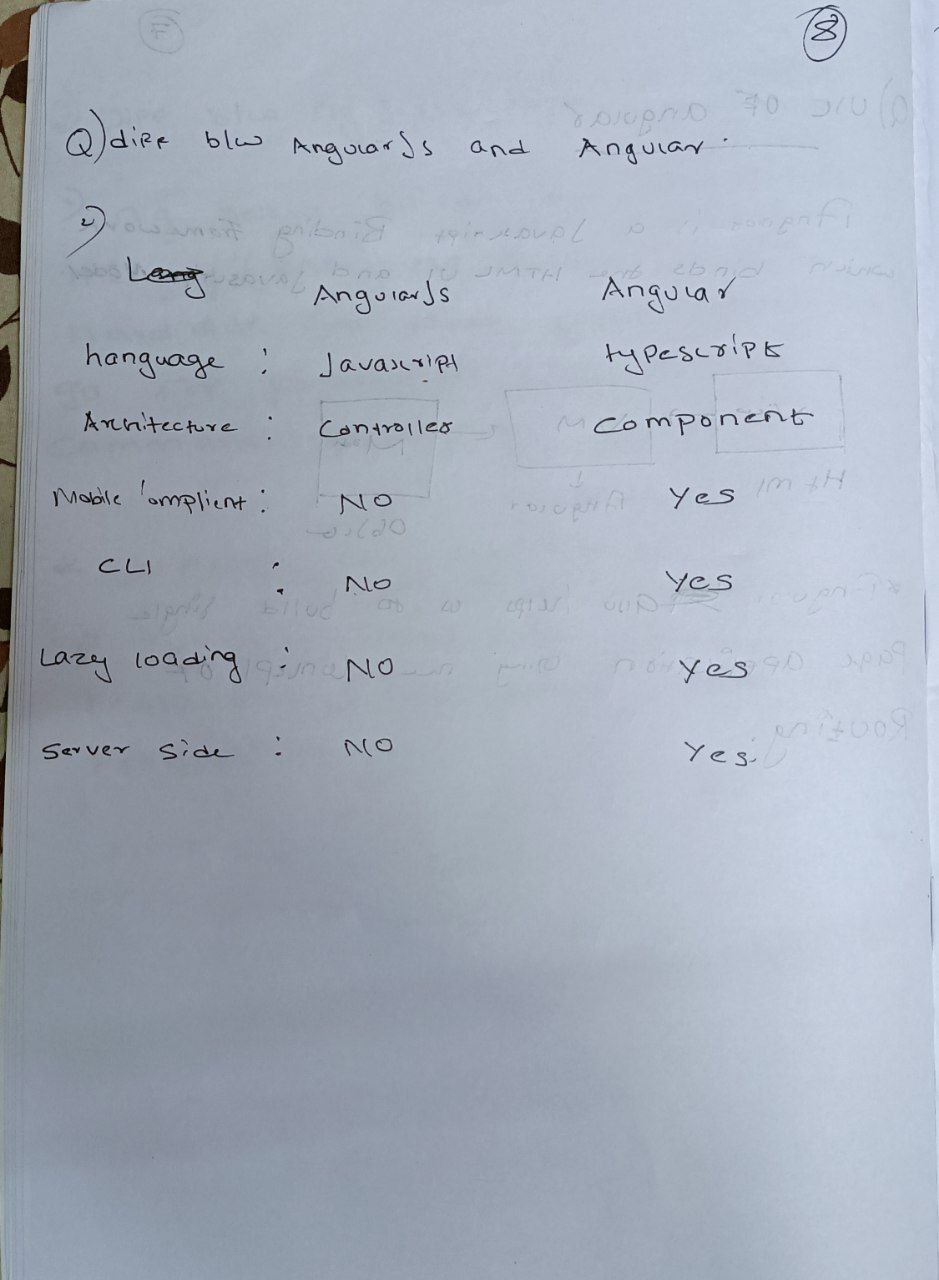 8
Q) diff b/w AngularJs and Angular.
AngularJs Angular
Language : Javascript typescript
Architecture : Controller Component
Mobile Complient : NO Yes
CLI : NO Yes
Lazy loading : NO Yes
Server Side : NO Yes.